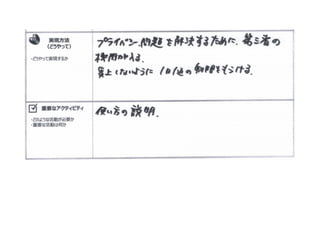 実現方法
(どうやって)
・どうやって実現するか
プライバシー問題を解決するために、第三者の
採用が入る。
炎上しないように1日1迄の制限をもうける。
重要なアクティビティ
・どのような活動が必要か
・重要な活動は何か
使い方の説明。